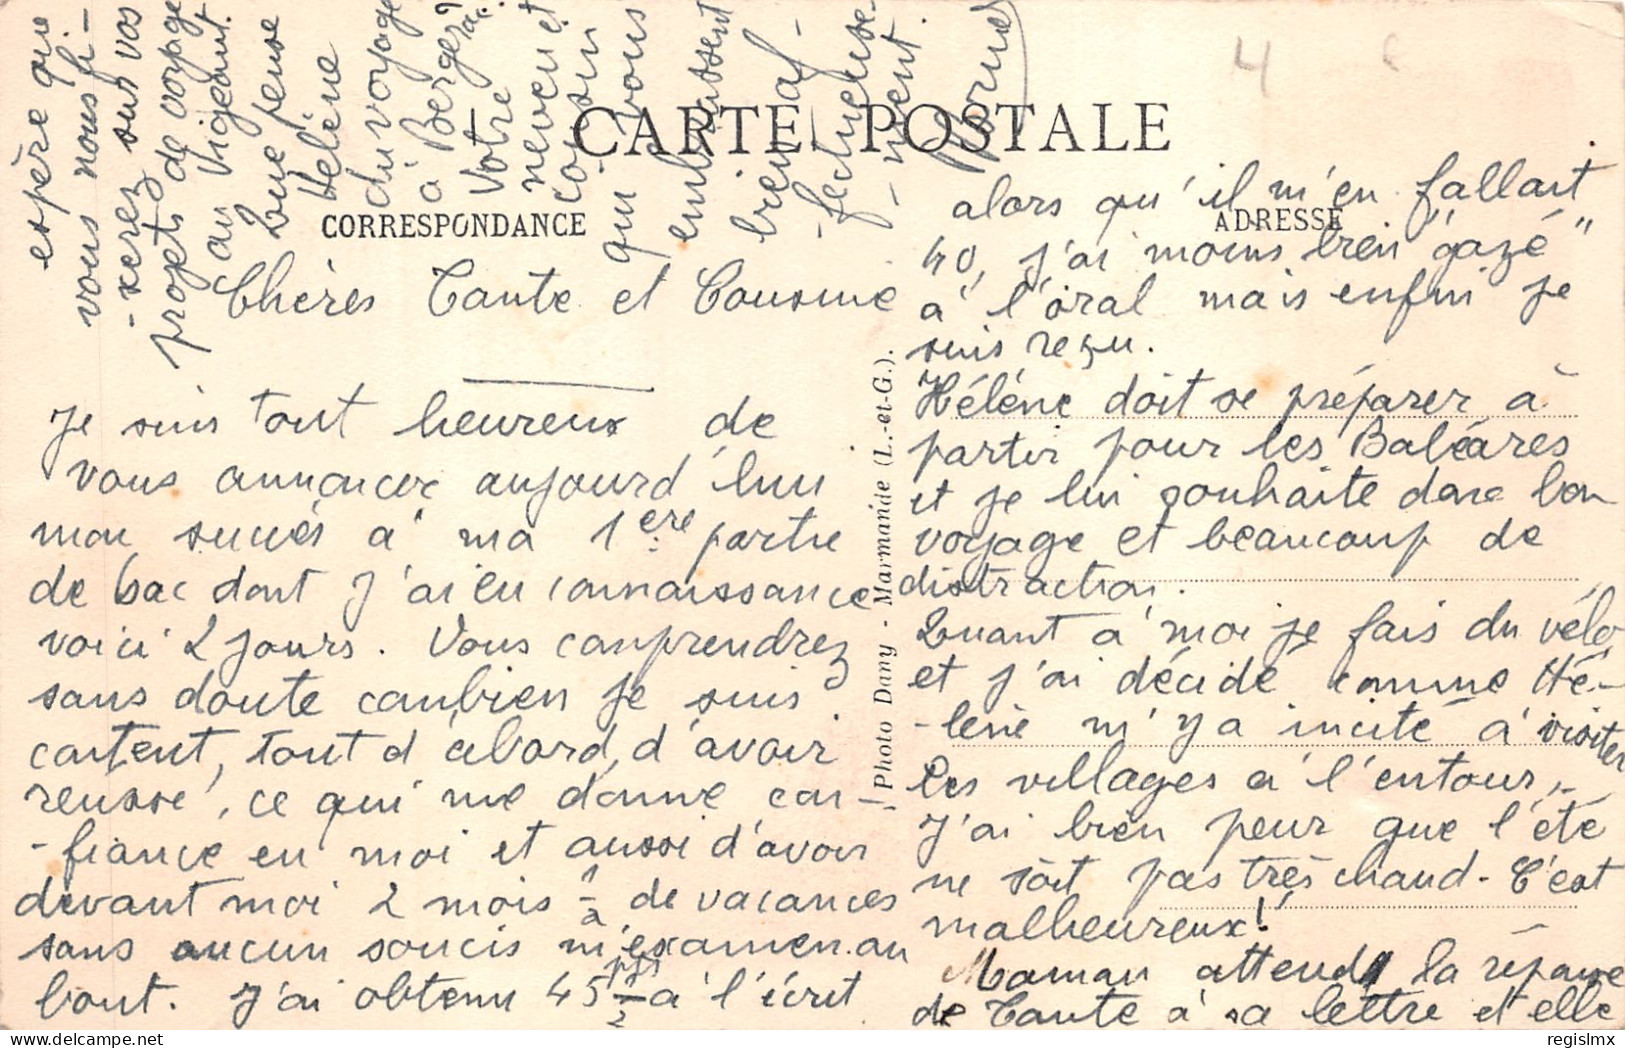 CARTE POSTALE
CORRESPONDANCE
ADRESSE
4
Chères Tante et Cousine
Je suis tout heureux de
vous annoncer aujourd'hui
mon succès à ma 1ere partie
de bac dont j'ai eu connaissance
voici 2 jours. Vous comprendrez
sans doute combien je suis
content, tout d'abord, d'avoir
reussi, ce qui me donne con-
-fiance en moi et aussi d'avoir
devant moi 2 mois 1/2 de vacances
sans aucun soucis ni examen au
bout. J'ai obtenu 45 pts 1/2 à l'écrit
alors qu'il m'en fallait
40, j'ai moins bien "gazé"
à l'oral mais enfin je
suis reçu.
Hélène doit se préparer à
partir pour les Baléares
et je lui souhaite donc bon
voyage et beaucoup de
distraction.
Quant à moi je fais du vélo
et j'ai décidé comme Hé-
-lène m'y a incité à visiter
les villages à l'entour.
J'ai bien peur que l'été
ne soit pas très chaud - C'est
malheureux!
Maman attend la réponse
de Tante à sa lettre et elle
espère que
vous nous fi-
-xerez sur vos
projets de voyage
au Vigeant.
Que pense
Hélène
du voyage
à Bergerac?
Votre
neveu et
cousin
qui vous
embrassent
bien af-
-fectueuse-
-ment.
Photo Dany - Marmande (L.-et-G.).
regislmx